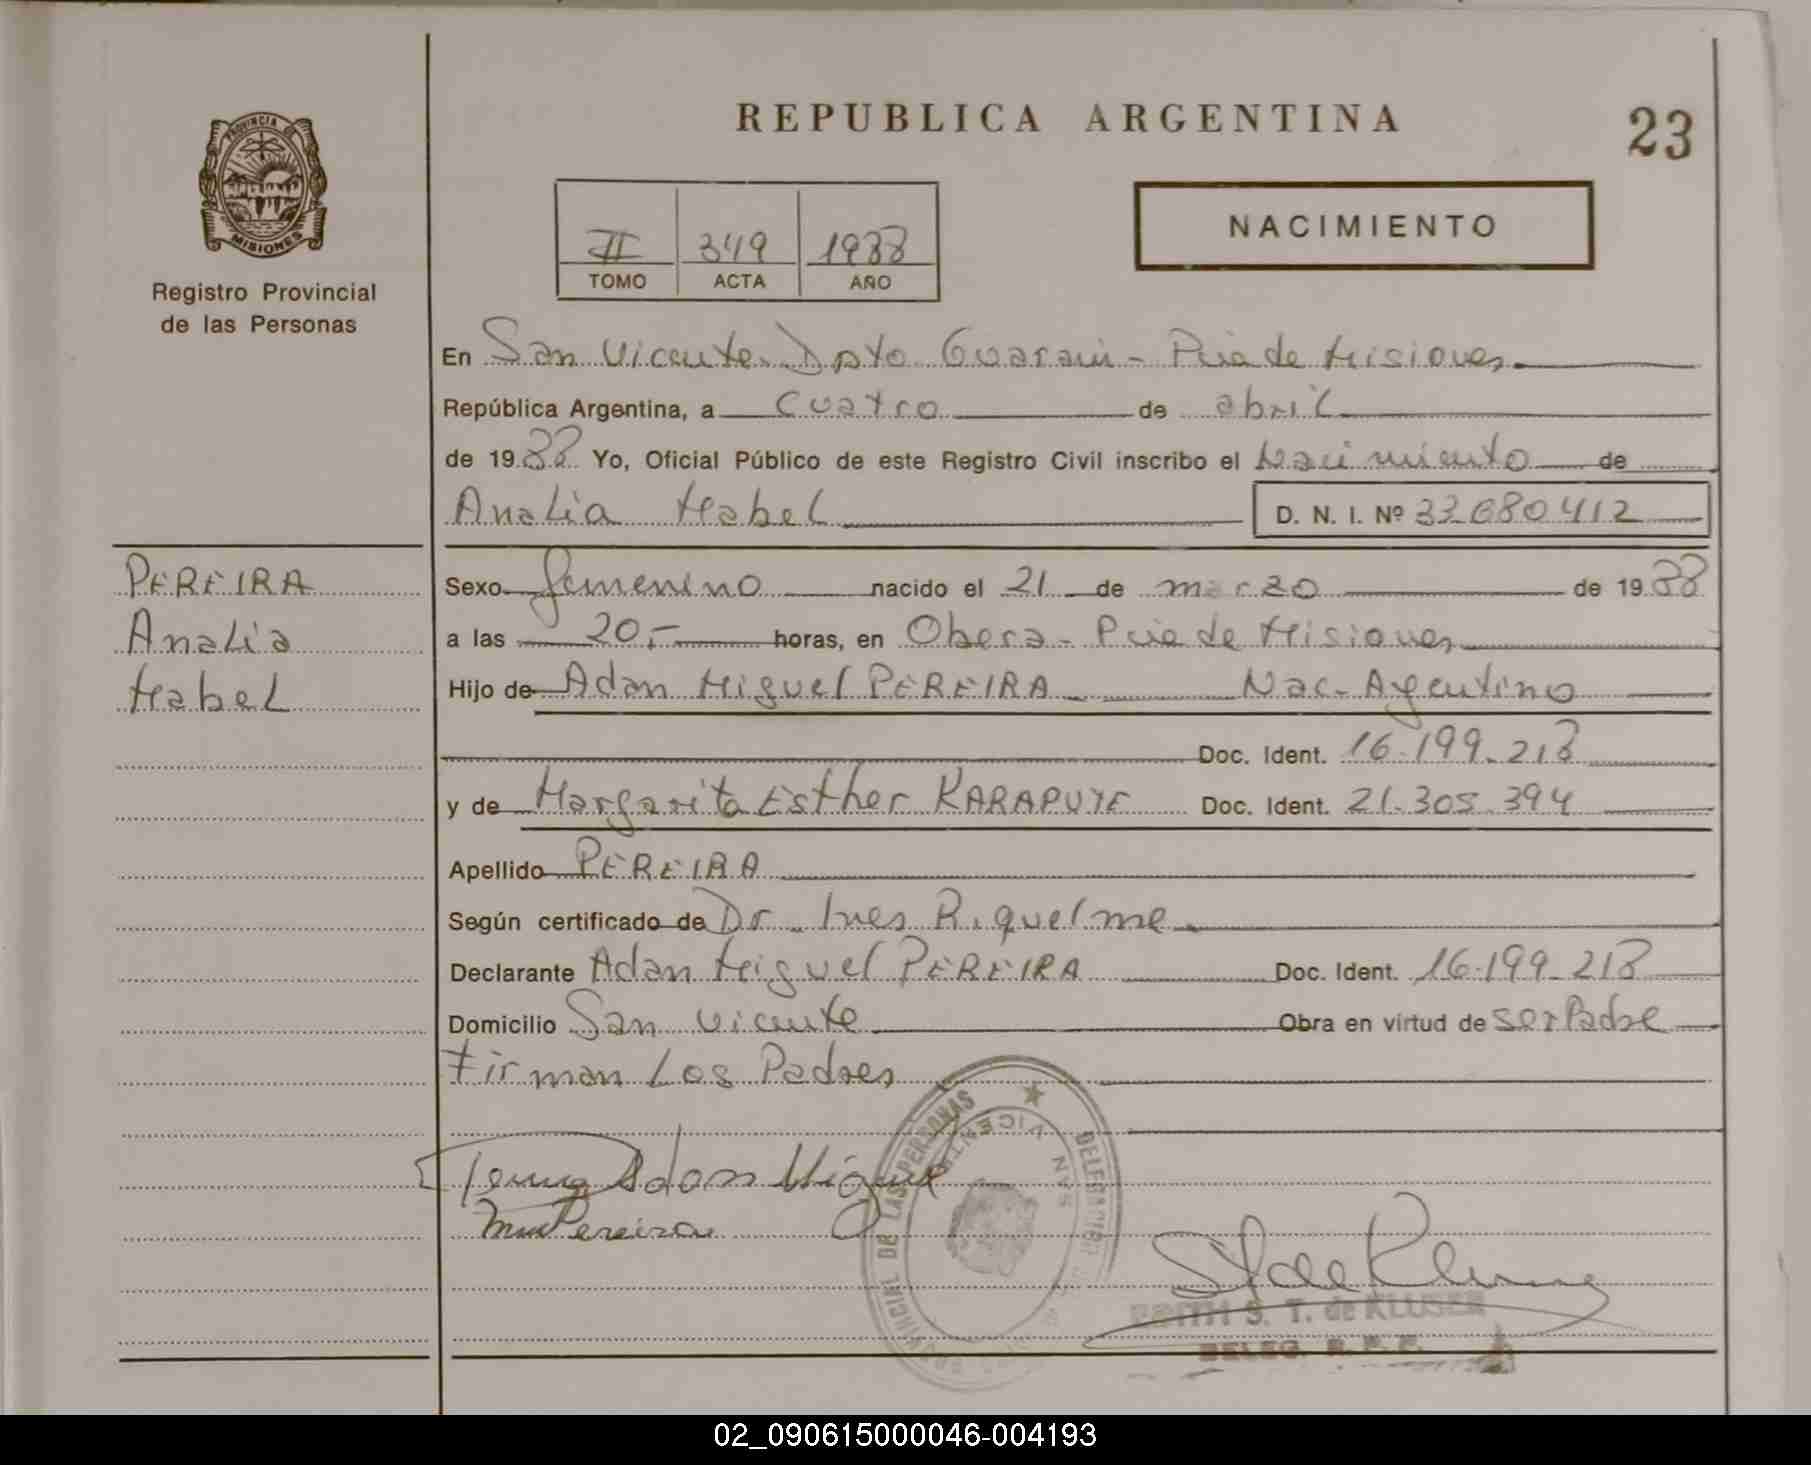 PROVINCIA DE
MISIONES
Registro Provincial
de las Personas
REPUBLICA ARGENTINA
23
II 349 1988
TOMO ACTA AÑO
NACIMIENTO
En San Vicente Dpto Guarani - Pcia de Misiones
República Argentina, a cuatro de abril
de 1988 Yo, Oficial Público de este Registro Civil inscribo el Nacimiento de
Analia Mabel D. N. I. Nº 33.680.412
PEREIRA
Analia
Mabel
Sexo femenino nacido el 21 de marzo de 1988
a las 20.- horas, en Obera - Pcia de Misiones
Hijo de Adan Miguel PEREIRA Nac. Argentino
Doc. Ident. 16.199.218
y de Margarita Esther KARAPUYE Doc. Ident. 21.305.394
Apellido PEREIRA
Según certificado de Dr. Ines Riquelme
Declarante Adan Miguel PEREIRA Doc. Ident. 16.199.218
Domicilio San Vicente Obra en virtud de ser Padre
Firman Los Padres
Adan Miguel
Pereira
PROVINCIAL DE LAS PERSONAS
DELEGACION
SAN VICENTE
S. T. de KLUSER
DELEG. R. P. P.
02_090615000046-004193